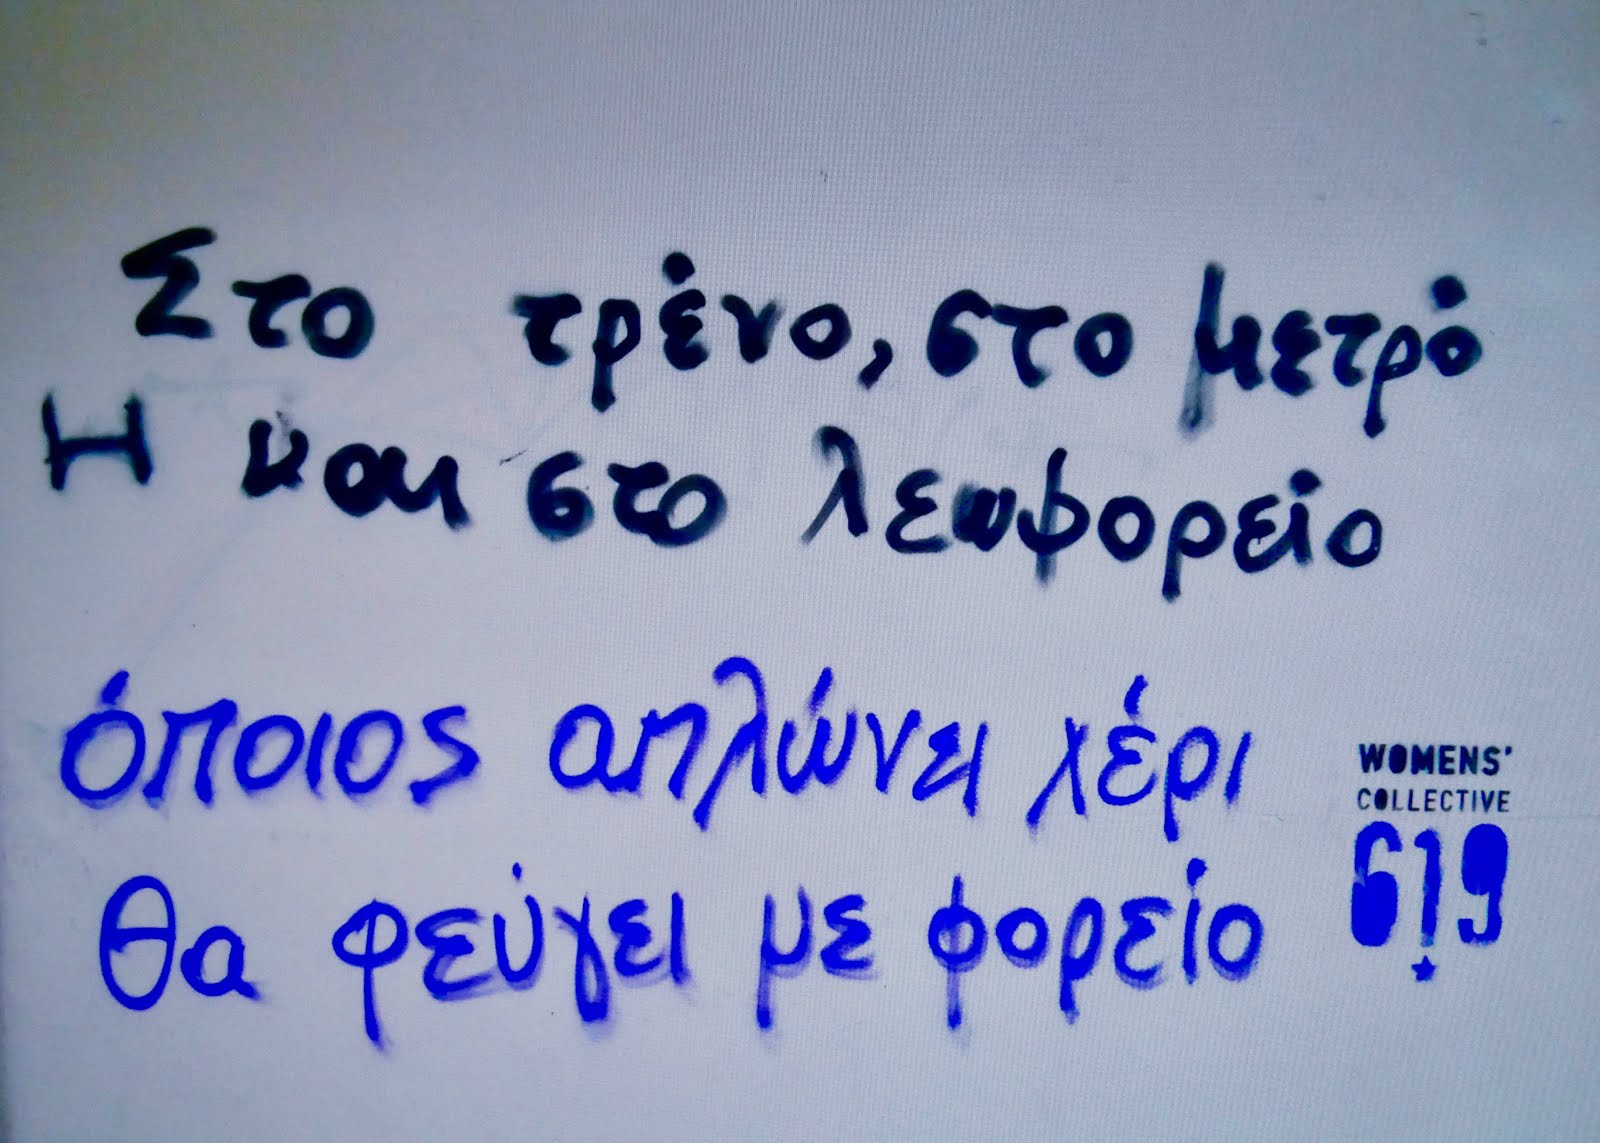 Στο τρένο, στο μετρό
Η και στο λεωφορείο
όποιος απλώνει χέρι
θα φεύγει με φορείο
WOMENS'
COLLECTIVE
619